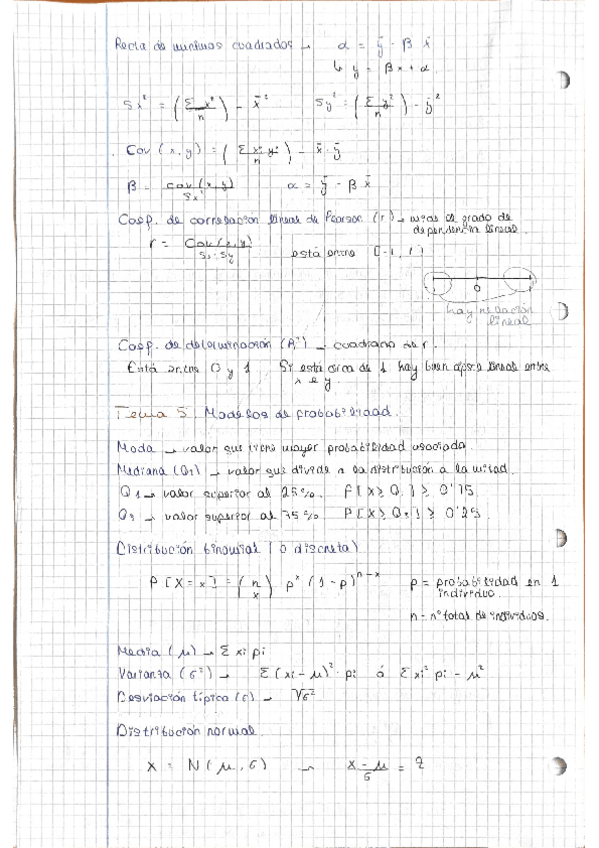 Recta de mínimos cuadrados → α = ȳ - β x̄
↳ y = βx + α
Sx² = (Σ x² / n) - x̄²   Sy² = (Σ y² / n) - ȳ²
Cov (x, y) = (Σ xi yi / n) - x̄ · ȳ
β = cov (x, y) / Sx²   α = ȳ - β x̄
Coef. de correlación lineal de Pearson (r) → mide el grado de
dependencia lineal.
r = Cov (x, y) / Sx · Sy   está entre [-1, 1]
0
hay relación
lineal
Coef. de determinación (R²) → cuadrado de r.
Está entre 0 y 1   Si está cerca de 1 hay buen ajuste lineal entre
x e y.
Tema 5 Modelos de probabilidad.
Moda → valor que tiene mayor probabilidad asociada.
Mediana (Q₂) → valor que divide a la distribución a la mitad.
Q1 → valor superior al 25%.   P[X ≥ Q₁] ≥ 0'75
Q3 → valor superior al 75%   P[X ≥ Q₃] ≥ 0'25.
Distribución binomial (o discreta)
P[X = x] = (n x) pˣ (1-p)ⁿ⁻ˣ   p = probabilidad en 1
individuo.
n = nº total de individuos.
Media (μ) → Σ xi pi
Varianza (σ²) → Σ (xi - μ)² · pi   ó   Σ xi² pi - μ²
Desviación típica (σ) → √σ²
Distribución normal.
X = N(μ, σ) → x - μ / σ = Z